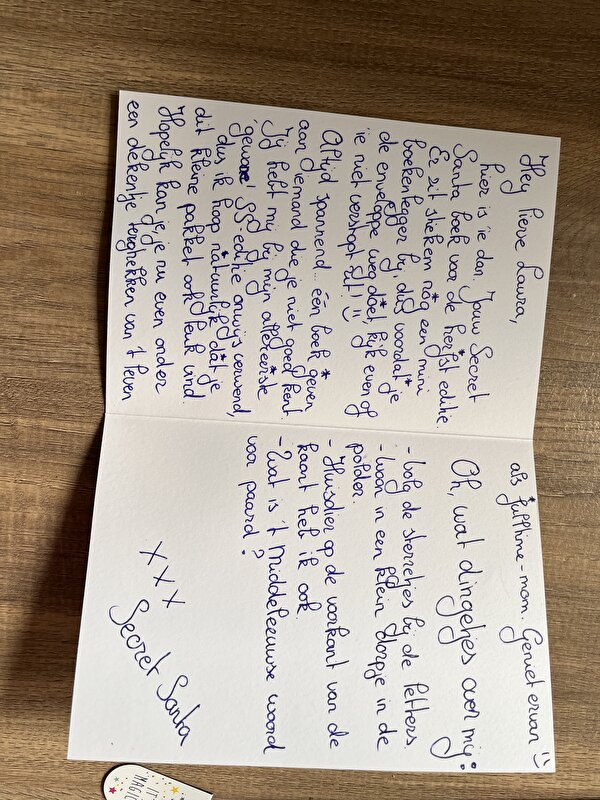 Hey lieve Laura,
hier is ie dan. Jouw Secret
Santa boek voor de herfst editie.
Er zit stiekem nog een mini
boekenlegger bij, dus voordat je
de enveloppe weg doet, kijk even of
ie niet verstopt zit! :)
Altijd spannend... één boek geven
aan iemand die je niet goed kent.
Jij hebt mij bij mijn allereerste
'gewone' SS-editie onwijs verwend,
dus ik hoop natuurlijk dat je
dit kleine pakket ook leuk vind.
Hopelijk kan je je nu even onder
een dekentje terugtrekken van 't leven
als fulltime-mom. Geniet ervan :)
Oh, wat dingetjes over mij:
- Volg de sterretjes bij de letters
- Woon in een klein dorpje in de
polder.
- Huisdier op de voorkant van de
kaart heb ik ook.
- Wat is 't Middeleeuwse woord
voor paard?
xxx
Secret Santa